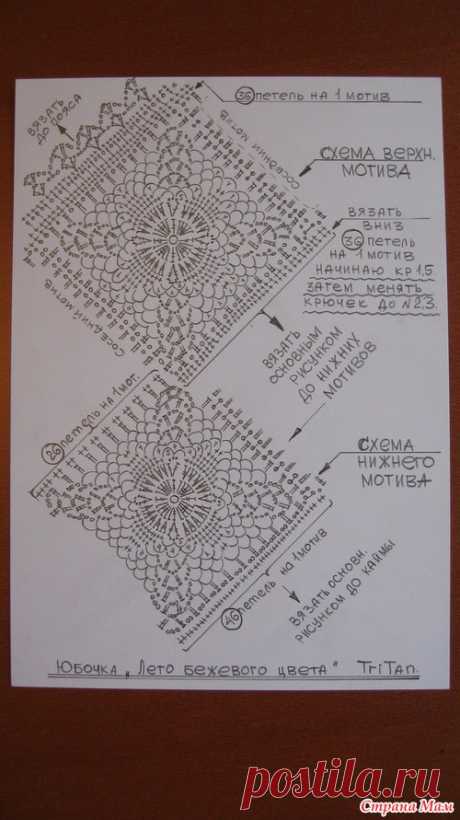 36 петель на 1 мотив
вязать
до пояса
соседний мотив
схема верхн.
мотива
вязать
вниз
36 петель
на 1 мотив
начинаю кр 1,5.
затем менять
крючек до №2,3.
соседний мотив
вязать
основным
рисунком
до нижних
мотивов
26 петель на 1 мот.
схема
нижнего
мотива
46 петель на 1 мотив
вязать основн.
рисунком до каймы
Юбочка „Лето бежевого цвета" TriTan.
postila.ru
Страна Мам